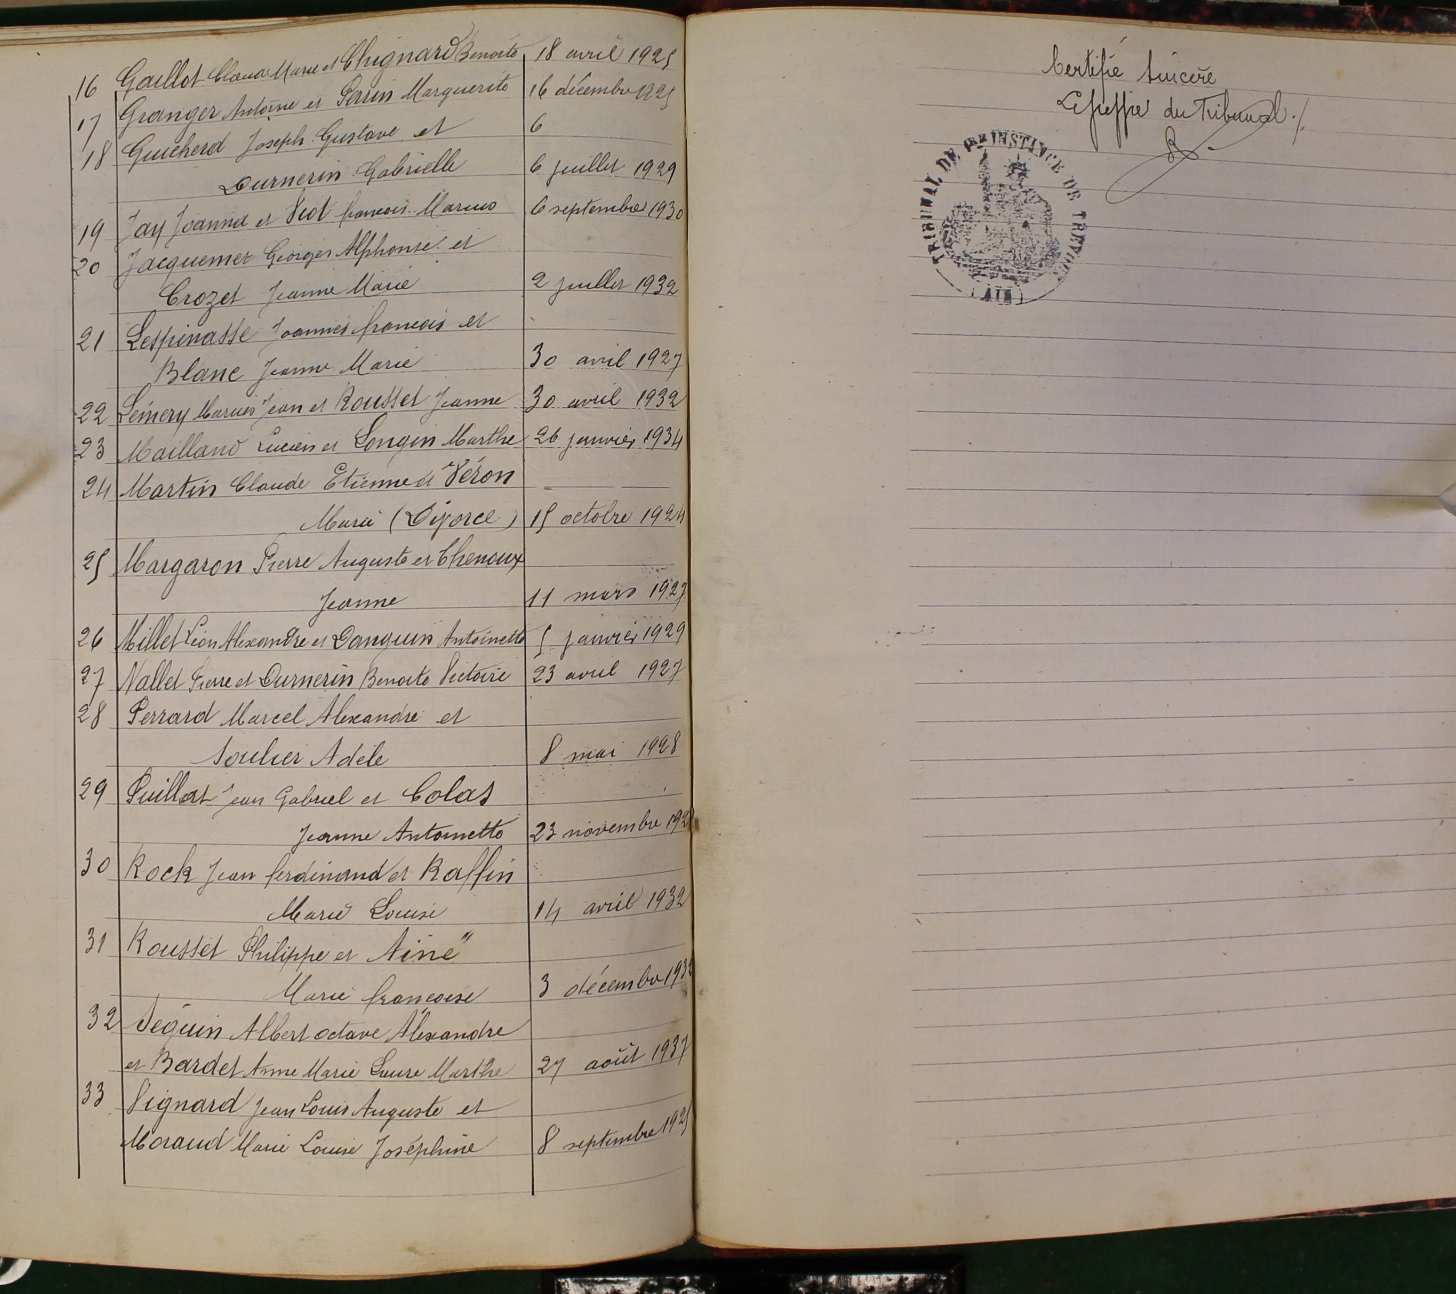 16 Gaillot Claude Marie et Chignard Benoite 18 avril 1925
17 Granger Antoine et Perrin Marguerite 16 décembre 1925
18 Guicherd Joseph Gustave et 6
Durnerin Gabrielle 6 juillet 1929
19 Jay Joanna et Viot françois Marius 6 septembre 1930
20 Jacquemet Georges Alphonse et
Crozet Jeanne Marie 2 juillet 1932
21 Lespinasse Joannès françois et
Blanc Jeanne Marie 30 avril 1927
22 Lémery Marius Jean et Rousset Jeanne 30 avril 1932
23 Mailland Lucien et Longin Marthe 26 janvier 1934
24 Martin Claude Etienne et Véron
Marie (Divorce) 15 octobre 1924
25 Margaron Pierre Auguste et Chenoux
Jeanne 11 mars 1927
26 Millet Léon Alexandre et Danguin Antoinette 5 janvier 1929
27 Nallet Pierre et Durnerin Benoite Victoire 23 avril 1927
28 Perrard Marcel Alexandre et
Soulier Adèle 8 mai 1928
29 Puillat Jean Gabriel et Colas
Jeanne Antoinette 23 novembre
30 Rock Jean ferdinand et Raffin
Marie Louise 14 avril 1932
31 Rousset Philippe et Ainé
Marie françoise 3 décembre
32 Seguin Albert octave Alexandre
et Bardet Anne Marie Laure Marthe 27 août 1937
33 Vignard Jean Louis Auguste et
Moraud Marie Louise Joséphine 8 septembre 1925
Certifié Sincère
Le greffier du Tribunal
TRIBUNAL DE 1ère INSTANCE DE TREVOUX
(AIN)